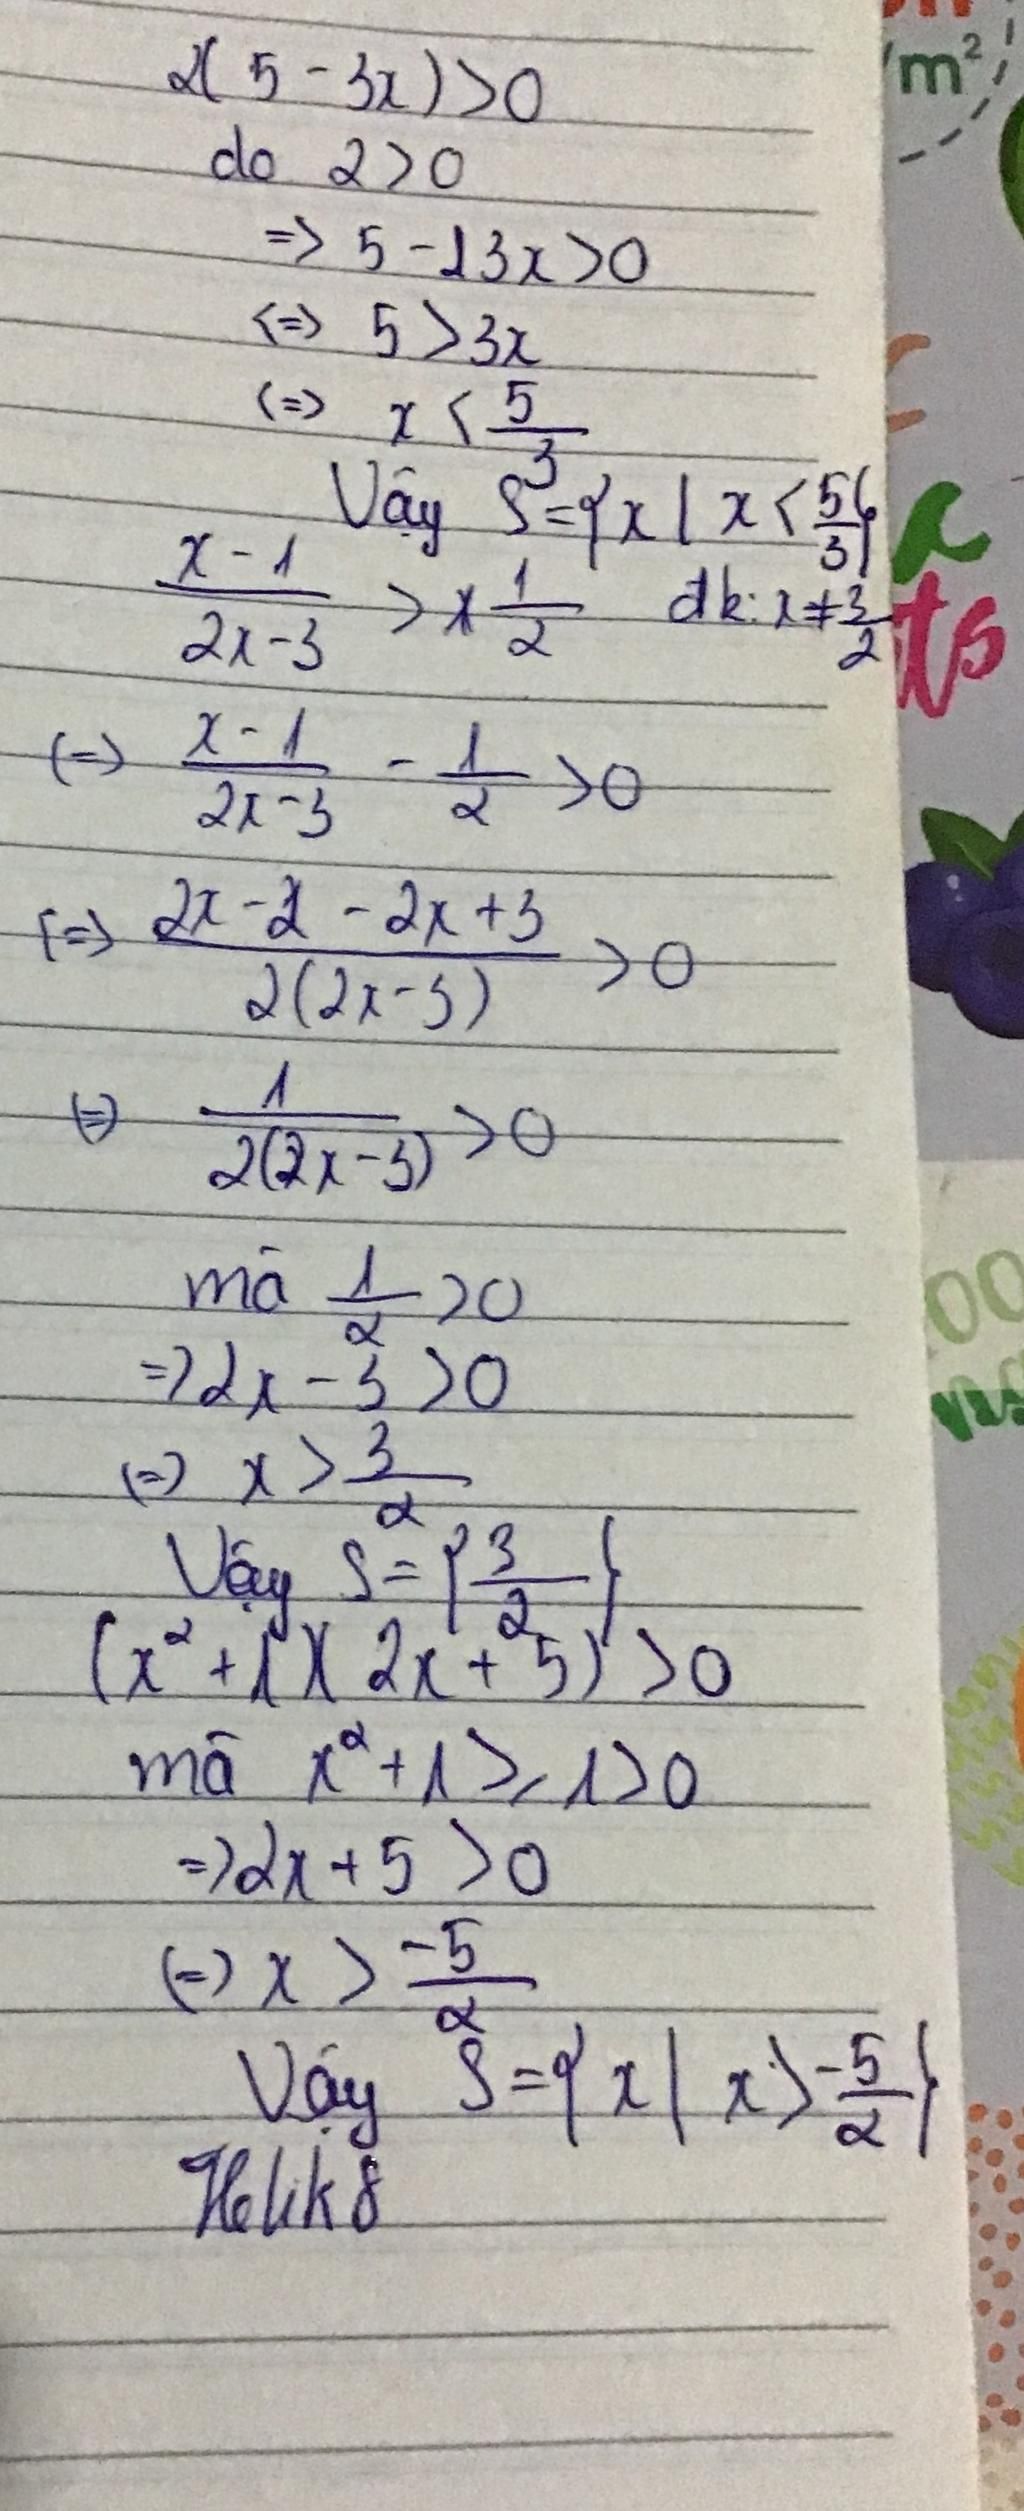 2(5 - 3x) > 0
do 2 > 0
=> 5 - 3x > 0
<=> 5 > 3x
<=> x < 5/3
Vậy S = {x | x < 5/3}
(x - 1)/(2x - 3) > 1/2 đk: x ≠ 3/2
<=> (x - 1)/(2x - 3) - 1/2 > 0
<=> (2x - 2 - 2x + 3)/(2(2x - 3)) > 0
<=> 1/(2(2x - 3)) > 0
mà 1/2 > 0
=> 2x - 3 > 0
<=> x > 3/2
Vậy S = {3/2}
(x² + 1)(2x + 5) > 0
mà x² + 1 ≥ 1 > 0
=> 2x + 5 > 0
<=> x > -5/2
Vậy S = {x | x > -5/2}
Helik8
m²
ts